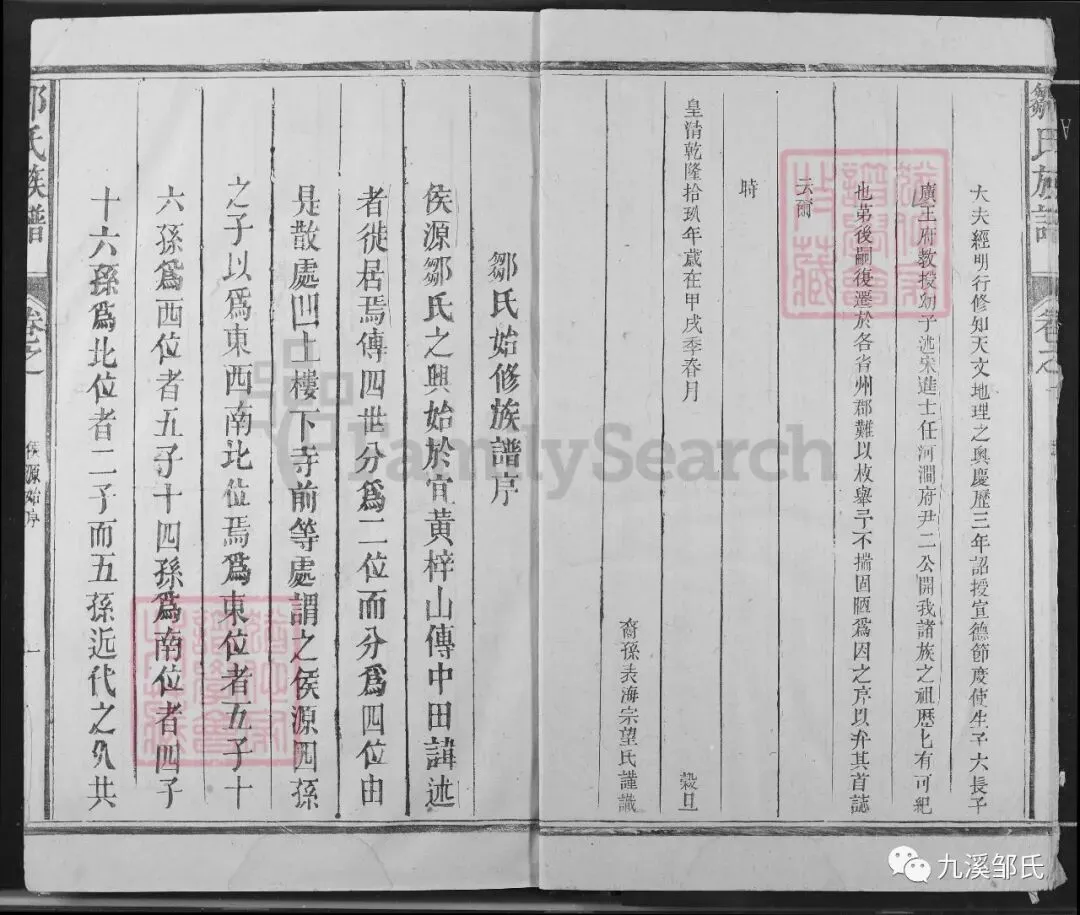 鄒氏族譜
卷之
大夫經明行修知天文地理之奧慶歷三年詔授宣德節度使生子六長子
廣王府教授幼子迯宋進士任河澗府尹二公開我諸族之祖歷七有可紀
也第後嗣復遷於各省州郡難以枚舉予不揣固陋爲因之序以弁其首誌
云爾
時
皇清乾隆拾玖年歲在甲戌季春月 穀旦
裔孫表海宗望氏謹識
鄒氏始修族譜序
侯源鄒氏之興始於宜黃梓山傳中田諱述
者徙居焉傳四世分爲二位而分爲四位由
是散處凹上樓下寺前等處謂之侯源四孫
之子以爲東西南北位焉爲東位者五子十
六孫爲西位者五子十四孫爲南位者四子
十六孫爲北位者二子而五孫近代之久共
鄒氏族譜
卷之
侯源始序
一
FamilySearch
九溪邹氏